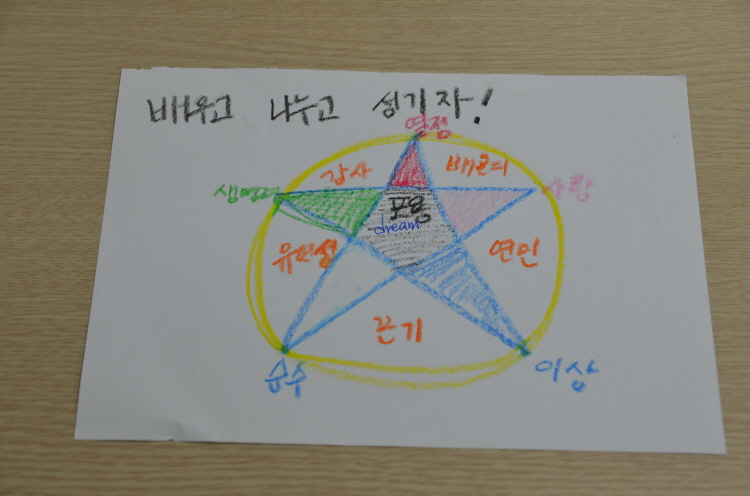 배우고 나누고 섬기자!
열정
감사
배려
생명력
사랑
포용
dream
유연성
연민
끈기
순수
이상